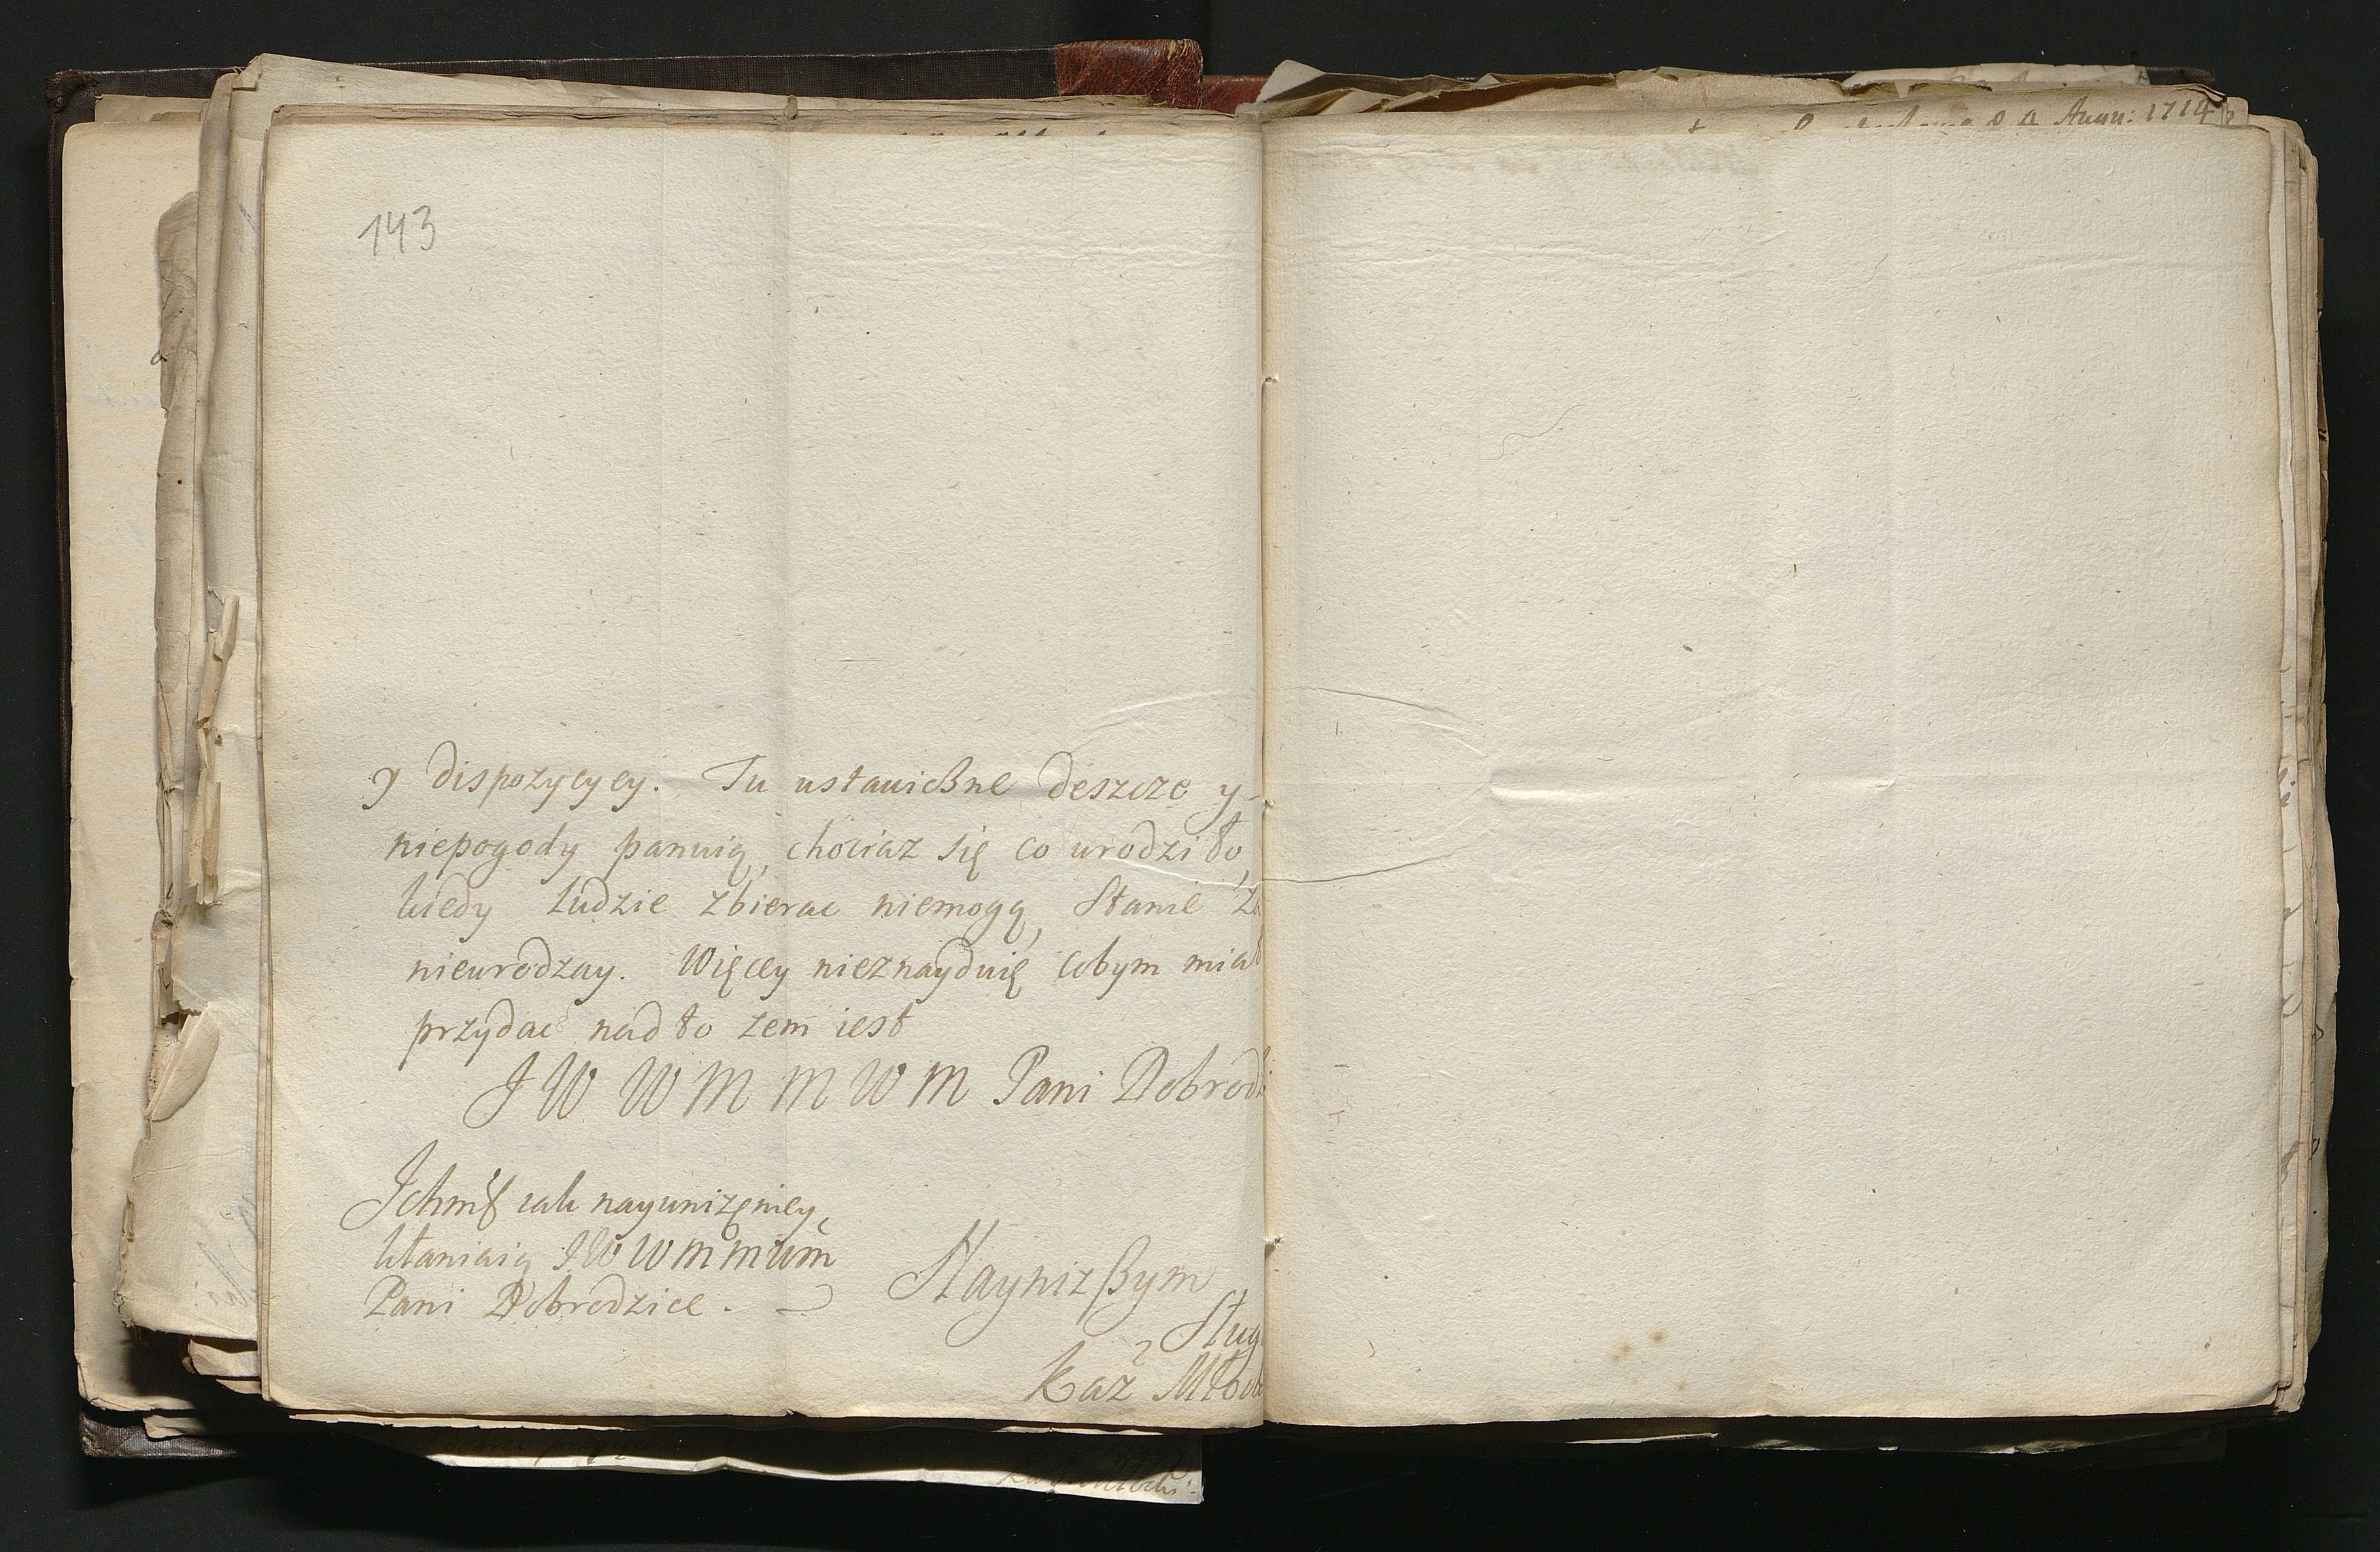 143
y dispozycyey. Tu ustauicßne deszcze y
niepogody panuią, chociaz się co urodziło,
kiedy ludzie zbierac niemogą, Stanie za
nieurodzay. Więcey nieznayduię cobym miał
przydac nad to zem iest
J W W M M W M Pani Dobrodzi
Ichmć iak nayunizęniey
kłaniaią J W W M M W M
Pani Dobrodzice.
Naynizßym
Sługą
Kaz Młod
1714